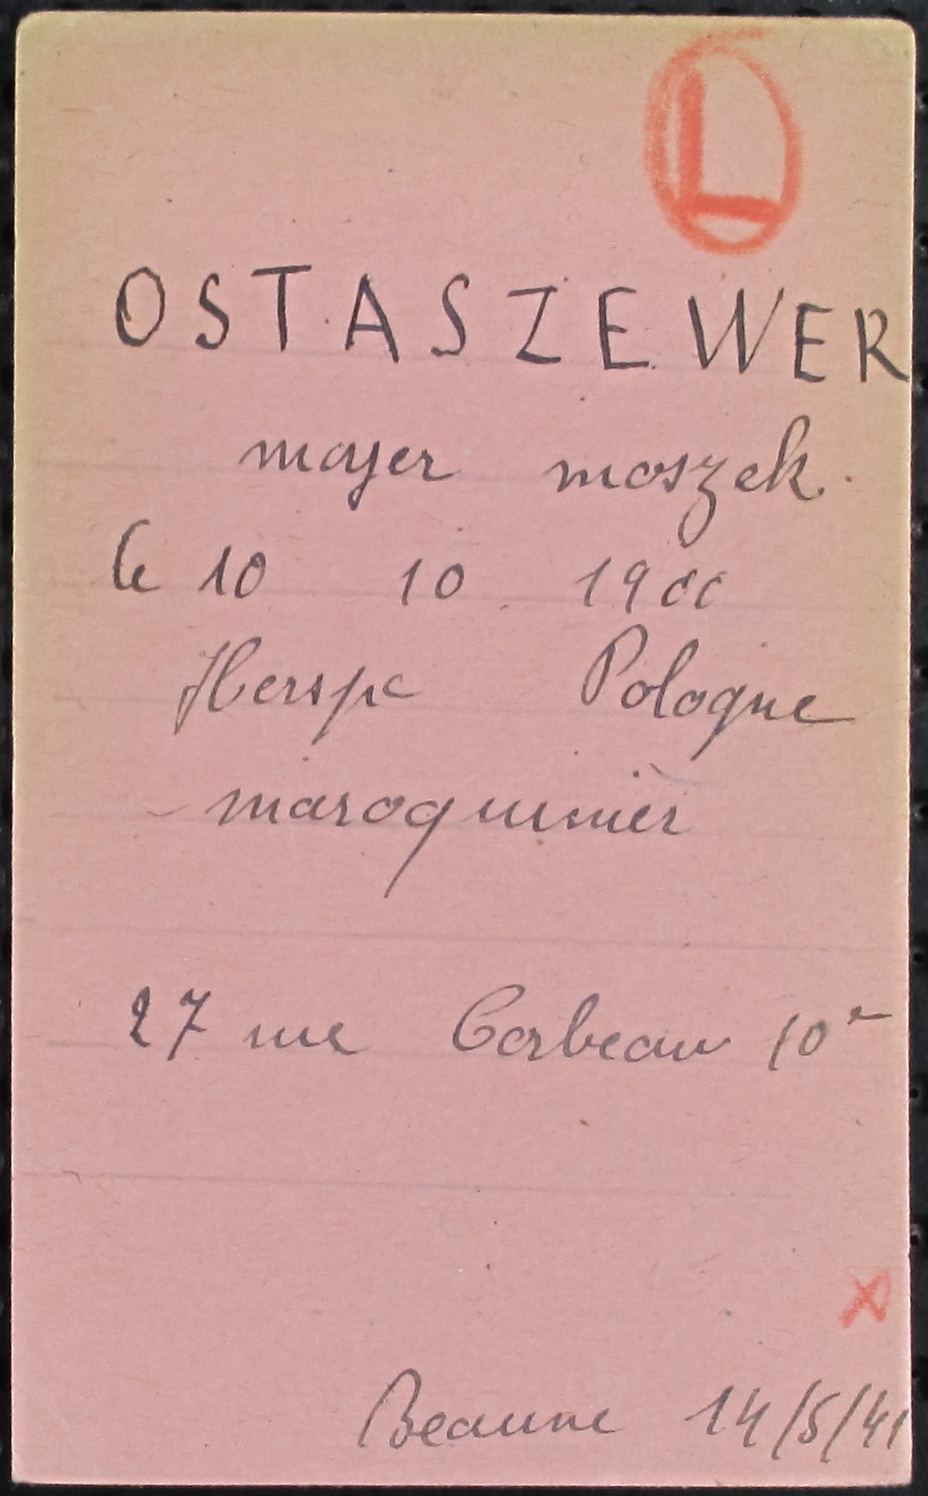 L
OSTASZEWER
majer moszek.
le 10 10 1900
Herspc Pologne
maroquinier
27 rue Corbeau 10e
x
Beaune 14/5/41